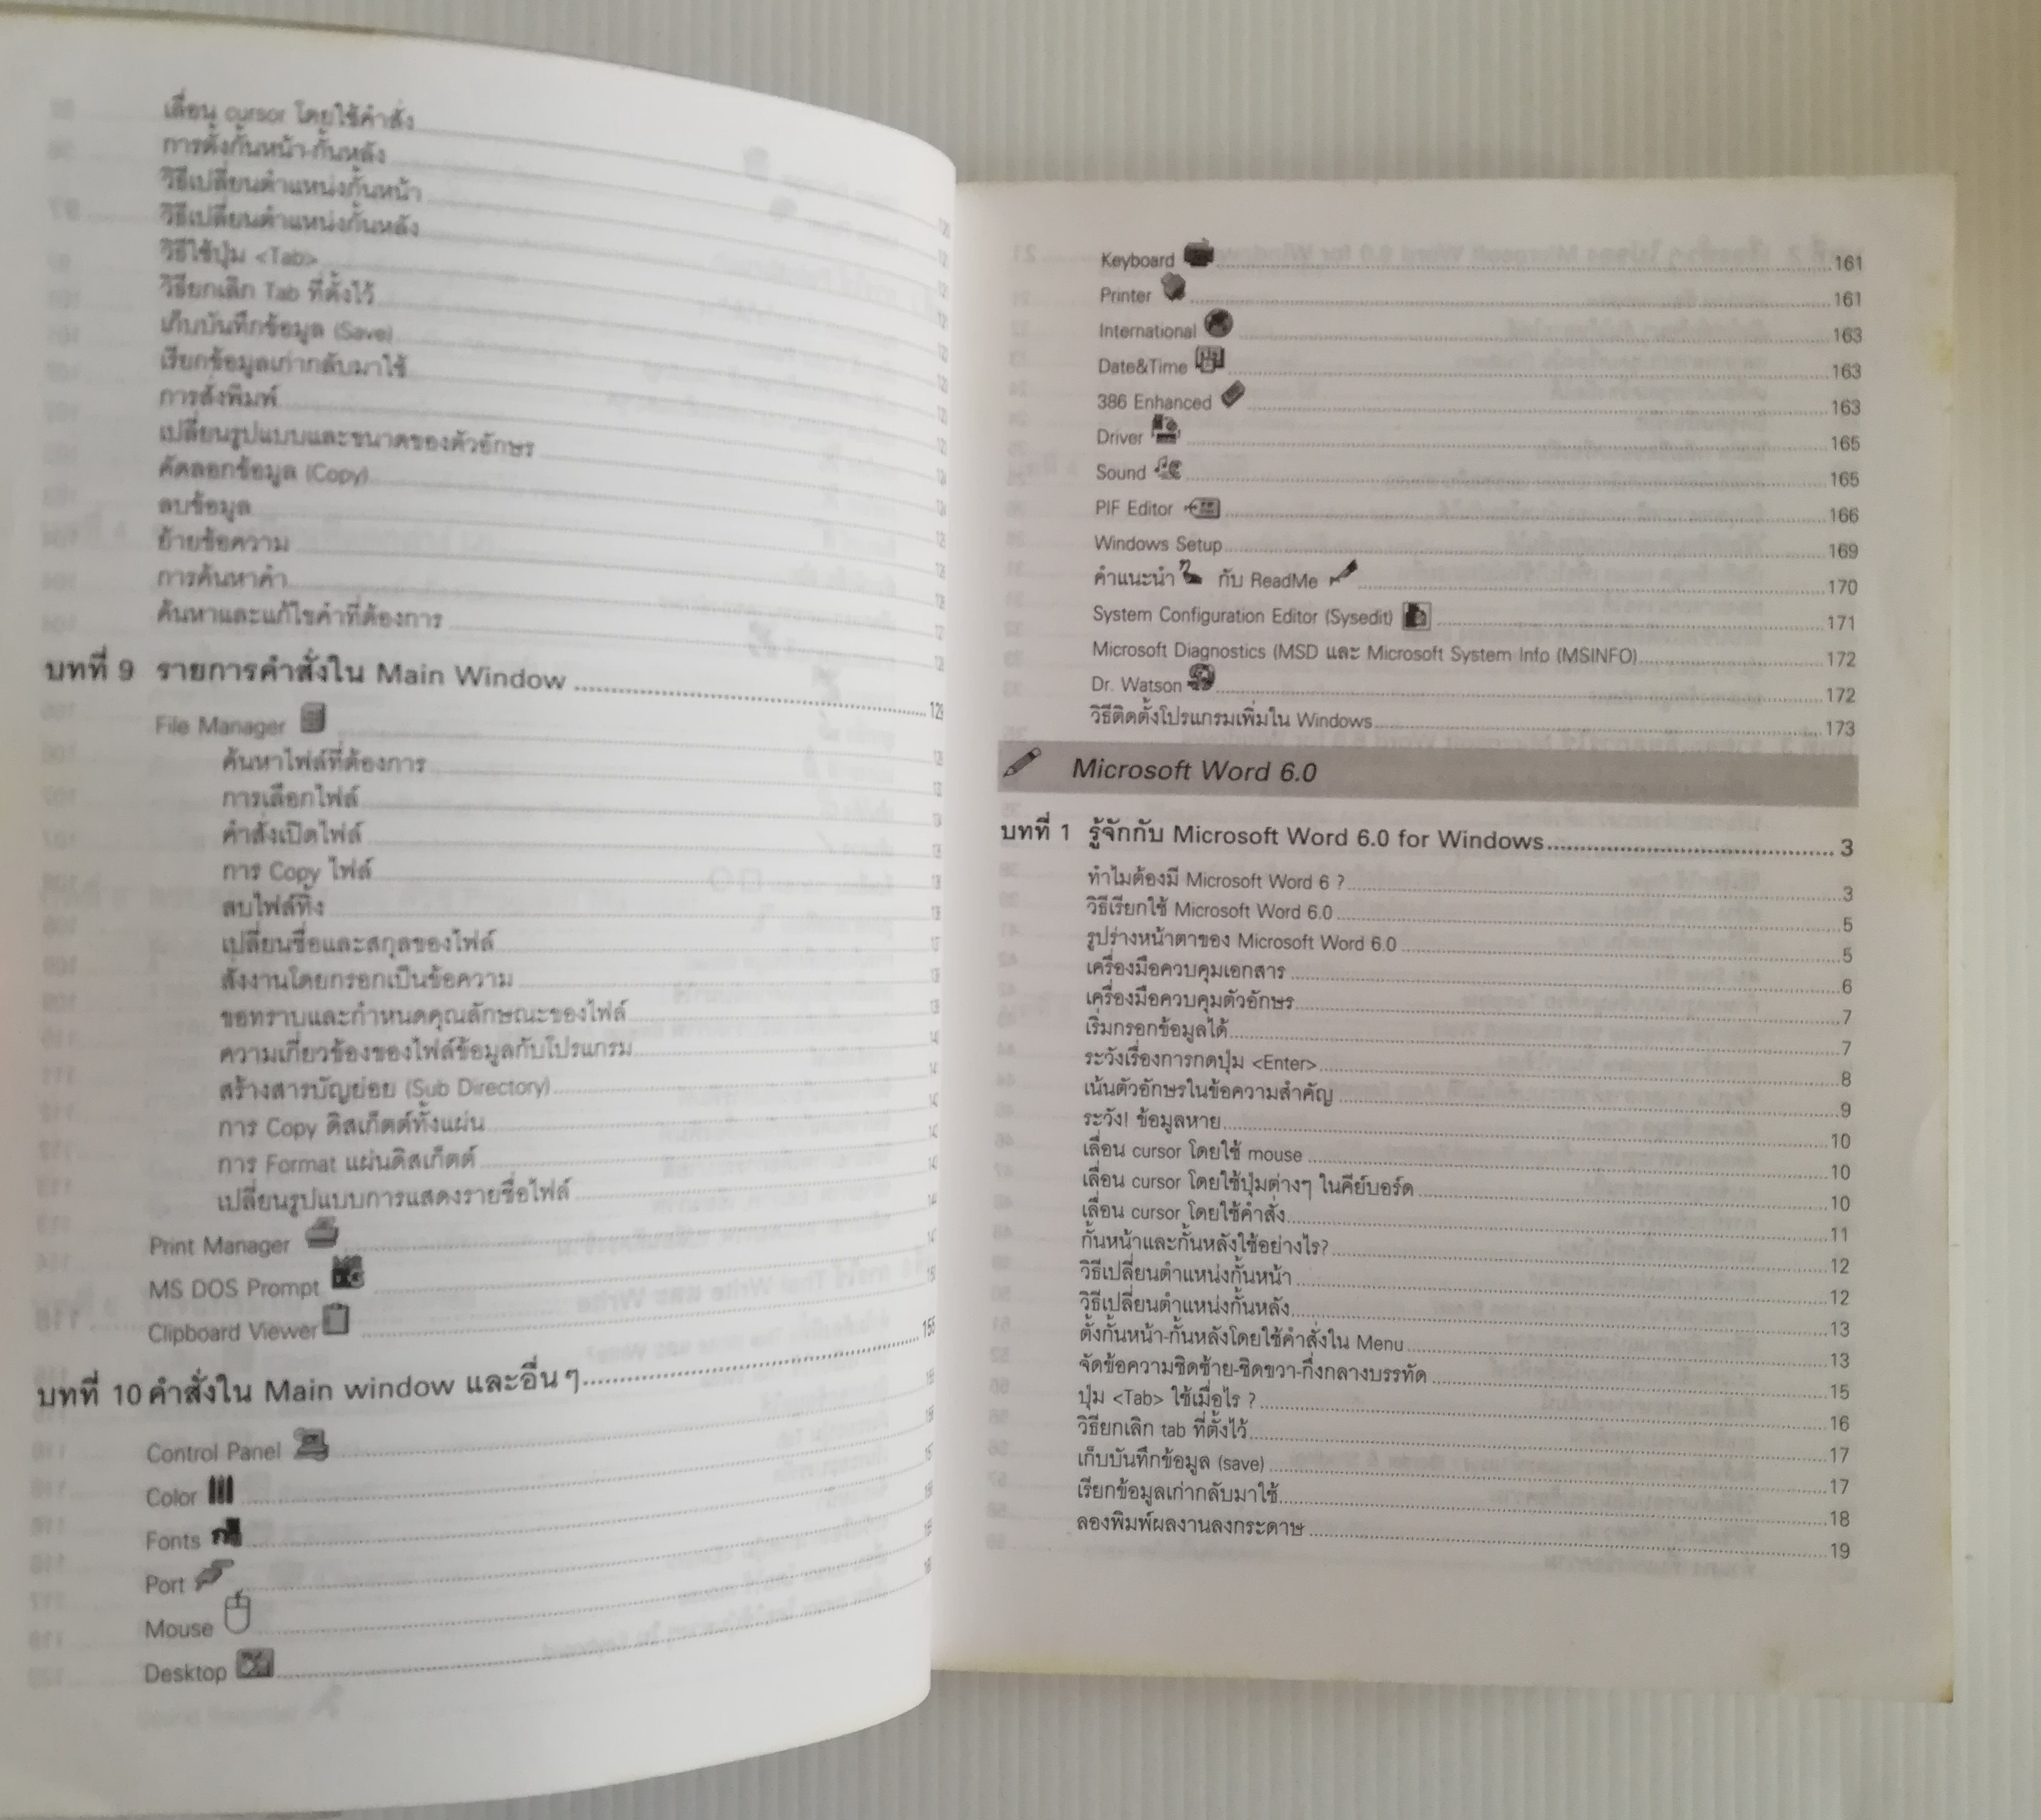 เลื่อน cursor โดยใช้คำสั่ง
การตั้งกั้นหน้า-กั้นหลัง
วิธีเปลี่ยนตำแหน่งกั้นหน้า
วิธีเปลี่ยนตำแหน่งกั้นหลัง
วิธีใช้ปุ่ม <Tab>
วิธียกเลิก Tab ที่ตั้งไว้
เก็บบันทึกข้อมูล (Save)
เรียกข้อมูลเก่ากลับมาใช้
การสั่งพิมพ์
เปลี่ยนรูปแบบและขนาดของตัวอักษร
คัดลอกข้อมูล (Copy)
ลบข้อมูล
ย้ายข้อความ
การค้นหาคำ
ค้นหาและแก้ไขคำที่ต้องการ
บทที่ 9 รายการคำสั่งใน Main Window
File Manager
ค้นหาไฟล์ที่ต้องการ
การเลือกไฟล์
คำสั่งเปิดไฟล์
การ Copy ไฟล์
ลบไฟล์ทิ้ง
เปลี่ยนชื่อและสกุลของไฟล์
สั่งงานโดยกรอกเป็นข้อความ
ขอทราบและกำหนดคุณลักษณะของไฟล์
ความเกี่ยวข้องของไฟล์ข้อมูลกับโปรแกรม
สร้างสารบัญย่อย (Sub Directory)
การ Copy ดิสเก็ตต์ทั้งแผ่น
การ Format แผ่นดิสเก็ตต์
เปลี่ยนรูปแบบการแสดงรายชื่อไฟล์
Print Manager
MS DOS Prompt
Clipboard Viewer
บทที่ 10 คำสั่งใน Main window และอื่นๆ 155
Control Panel
Color
Fonts
Port
Mouse
Desktop
Keyboard 161
Printer 161
International 163
Date&Time 163
386 Enhanced 163
Driver 165
Sound 165
PIF Editor 166
Windows Setup 169
คำแนะนำ กับ ReadMe 170
System Configuration Editor (Sysedit) 171
Microsoft Diagnostics (MSD และ Microsoft System Info (MSINFO) 172
Dr. Watson 172
วิธีติดตั้งโปรแกรมเพิ่มใน Windows 173
Microsoft Word 6.0
บทที่ 1 รู้จักกับ Microsoft Word 6.0 for Windows 3
ทำไมต้องมี Microsoft Word 6 ? 3
วิธีเรียกใช้ Microsoft Word 6.0 5
รูปร่างหน้าตาของ Microsoft Word 6.0 5
เครื่องมือควบคุมเอกสาร 6
เครื่องมือควบคุมตัวอักษร 7
เริ่มกรอกข้อมูลได้ 7
ระวังเรื่องการกดปุ่ม <Enter> 8
เน้นตัวอักษรในข้อความสำคัญ 9
ระวัง! ข้อมูลหาย 10
เลื่อน cursor โดยใช้ mouse 10
เลื่อน cursor โดยใช้ปุ่มต่างๆ ในคีย์บอร์ด 10
เลื่อน cursor โดยใช้คำสั่ง 11
กั้นหน้าและกั้นหลังใช้อย่างไร? 12
วิธีเปลี่ยนตำแหน่งกั้นหน้า 12
วิธีเปลี่ยนตำแหน่งกั้นหลัง 13
ตั้งกั้นหน้า-กั้นหลังโดยใช้คำสั่งใน Menu 13
จัดข้อความชิดซ้าย-ชิดขวา-กึ่งกลางบรรทัด 15
ปุ่ม <Tab> ใช้เมื่อไร ? 16
วิธียกเลิก tab ที่ตั้งไว้ 17
เก็บบันทึกข้อมูล (save) 17
เรียกข้อมูลเก่ากลับมาใช้ 18
ลองพิมพ์ผลงานลงกระดาษ 19